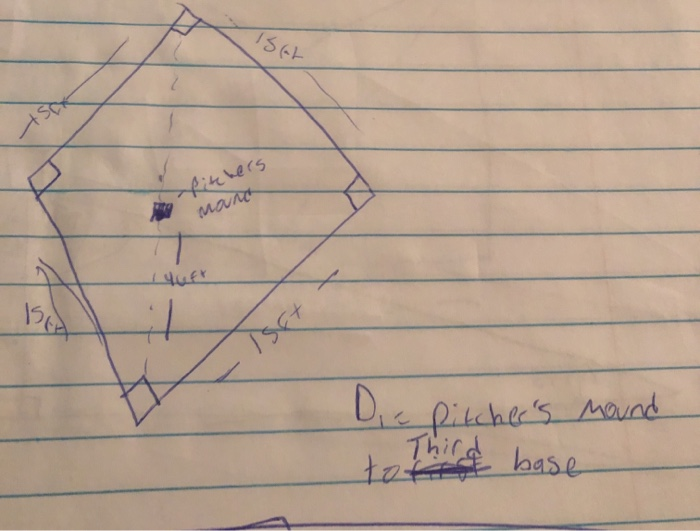 15ft
15ft
-pitchers
mound
15ft
15ft
D₁ = pitcher's mound
to Third base